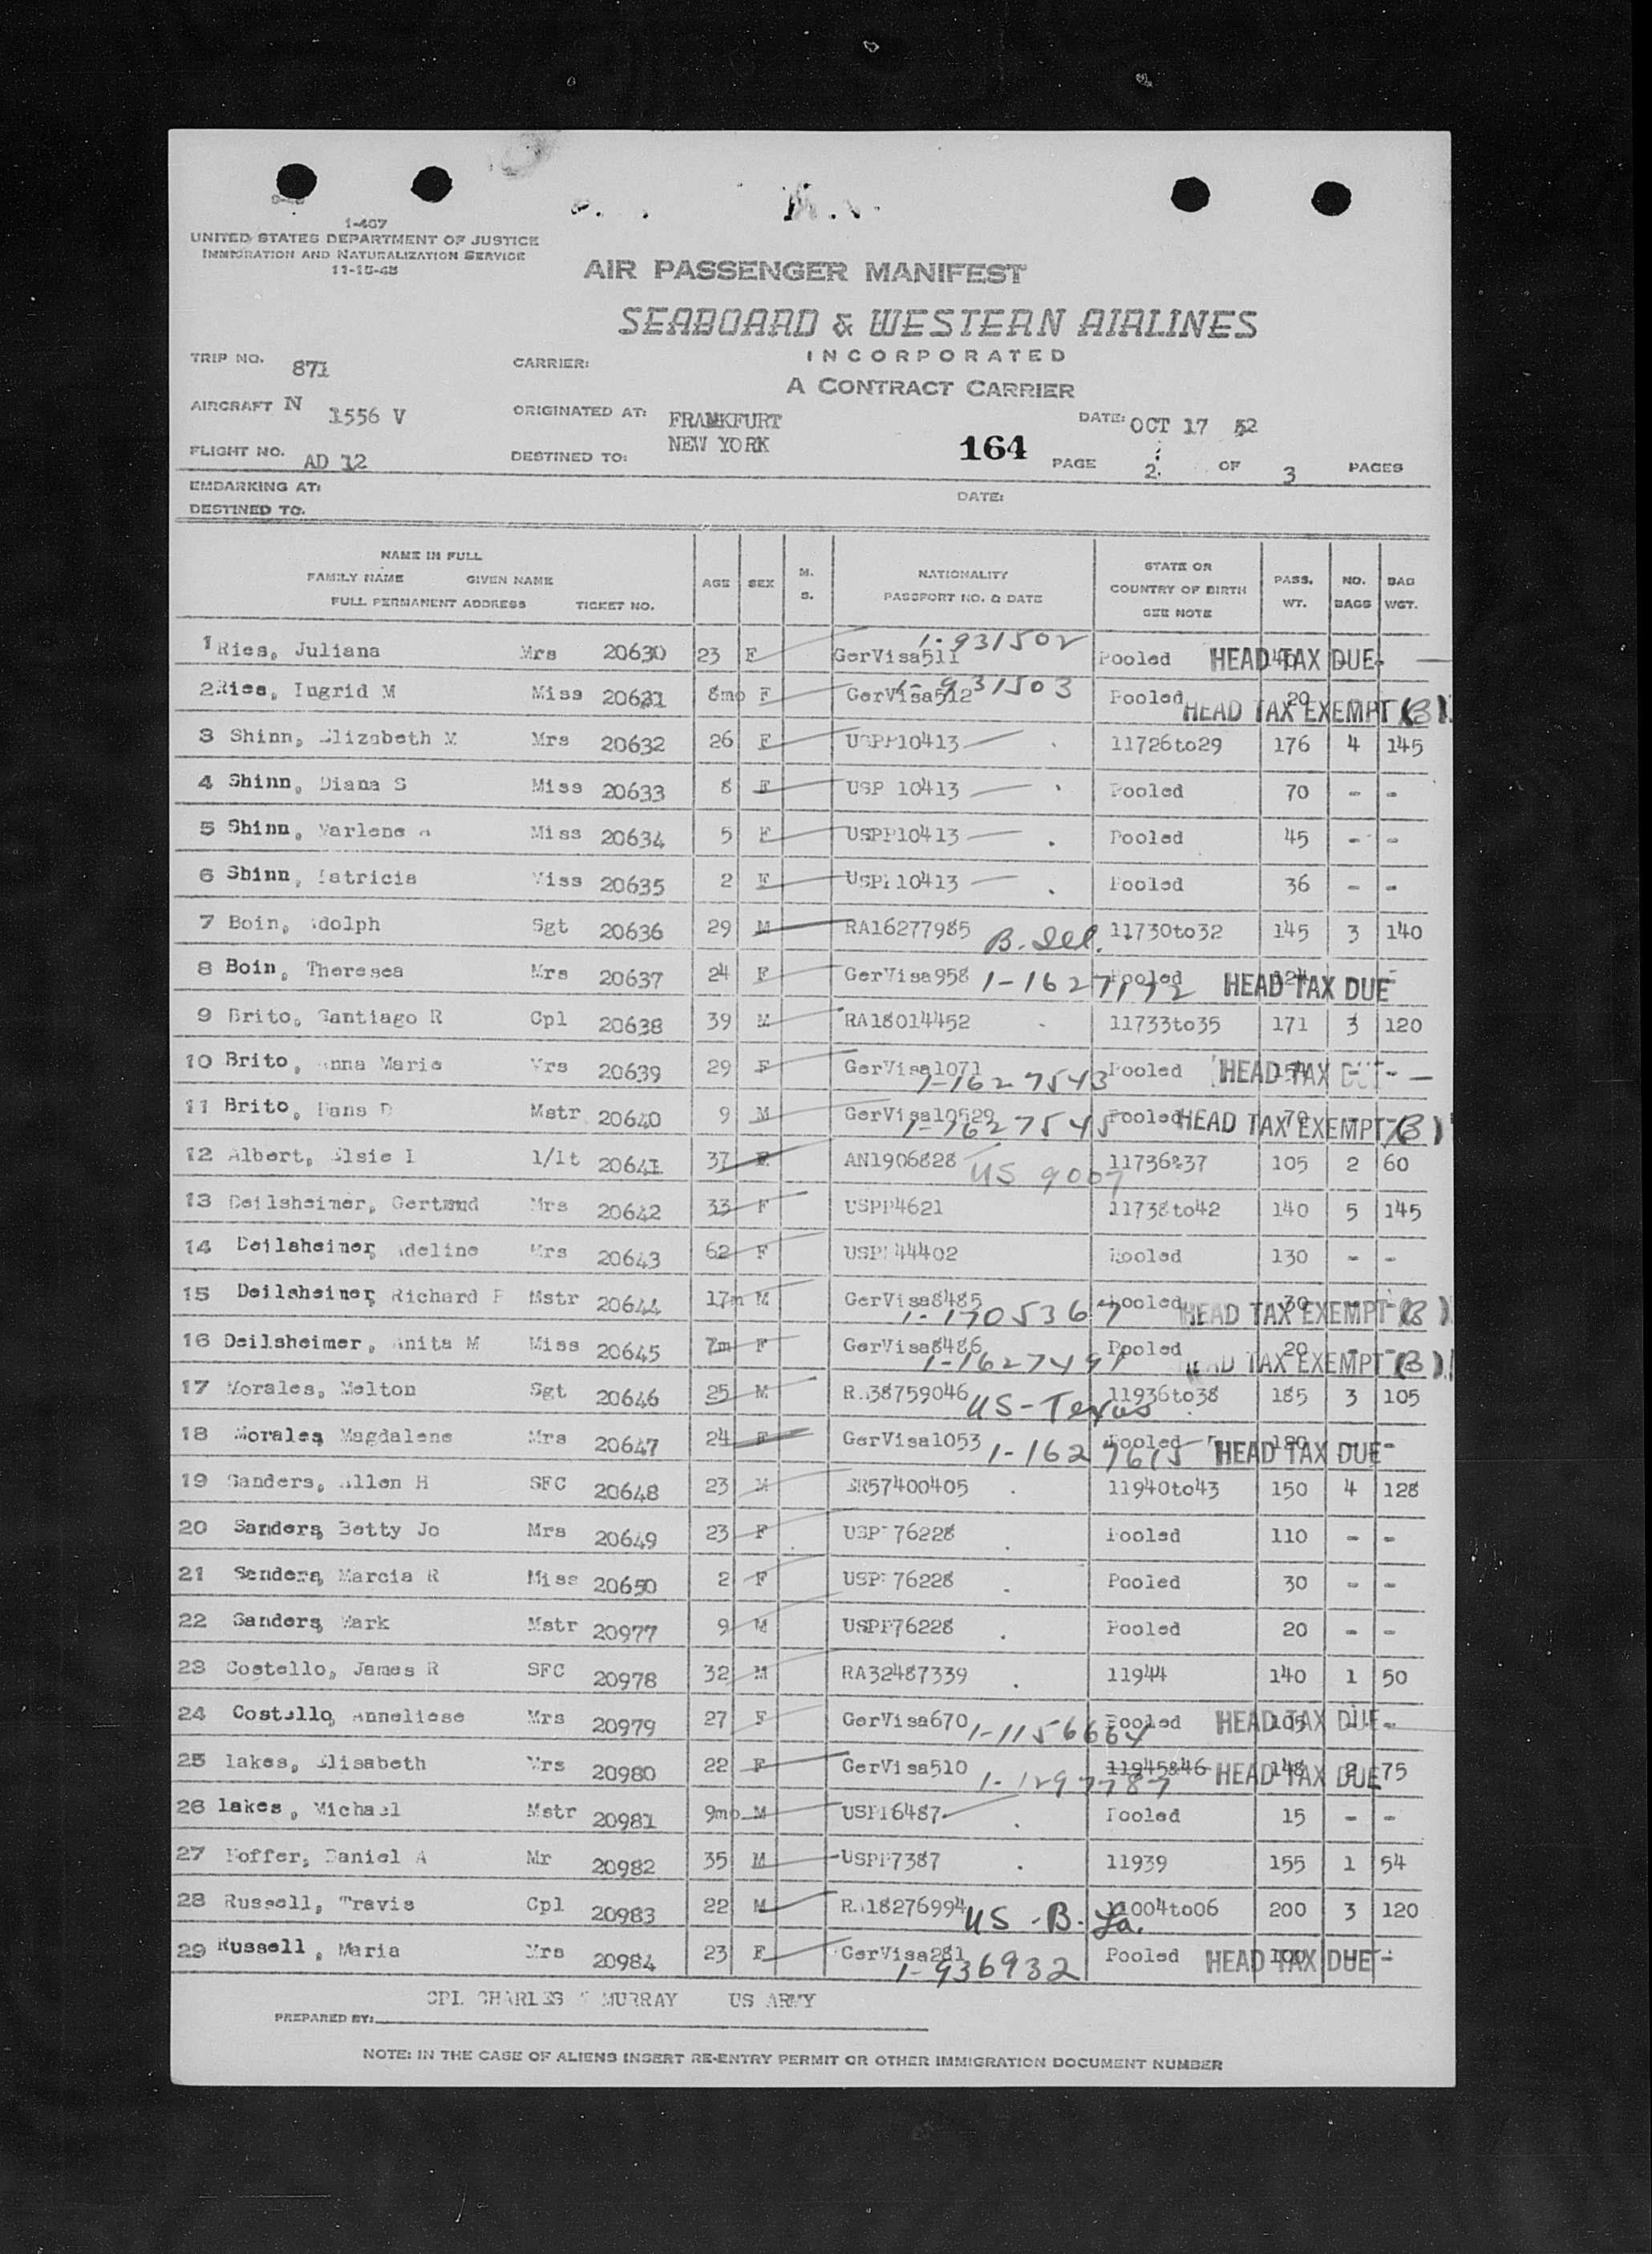 1-467
UNITED STATES DEPARTMENT OF JUSTICE
IMMIGRATION AND NATURALIZATION SERVICE
11-15-45
AIR PASSENGER MANIFEST
SEABOARD & WESTERN AIRLINES
INCORPORATED
A CONTRACT CARRIER
TRIP NO. 871 CARRIER:
AIRCRAFT N 1556 V ORIGINATED AT: FRANKFURT DATE: OCT 17 52
FLIGHT NO. AD 12 DESTINED TO: NEW YORK 164 PAGE 2 OF 3 PAGES
EMBARKING AT: DATE:
DESTINED TO.
NAME IN FULL
FAMILY NAME GIVEN NAME
FULL PERMANENT ADDRESS TICKET NO.
AGE SEX M. S. NATIONALITY PASSPORT NO. & DATE STATE OR COUNTRY OF BIRTH SEE NOTE PASS. WT. NO. BAGS BAG WGT.
1 Ries, Juliana Mrs 20630 23 F GerVisa511 1-931502 Pooled HEAD TAX DUE -
2 Ries, Ingrid M Miss 20631 8mo F GerVisa512 1-931503 Pooled 20 HEAD TAX EXEMPT (B)
3 Shinn, Elizabeth M Mrs 20632 26 F USPP10413 11726to29 176 4 145
4 Shinn, Diana S Miss 20633 8 F USP 10413 Pooled 70 - -
5 Shinn, Marlene A Miss 20634 5 F USPP10413 Pooled 45 - -
6 Shinn, Patricia Miss 20635 2 F USPP10413 Pooled 36 - -
7 Boin, Adolph Sgt 20636 29 M RA16277985 B. Ill. 11730to32 145 3 140
8 Boin, Theresea Mrs 20637 24 F GerVisa958 1-1627172 Pooled 124 HEAD TAX DUE -
9 Brito, Santiago R Cpl 20638 39 M RA18014452 11733to35 171 3 120
10 Brito, Anna Marie Mrs 20639 29 F GerVisa1071 1-1627543 Pooled HEAD TAX DUE - -
11 Brito, Hans D Mstr 20640 9 M GerVisa10529 1-1627545 Pooled 70 HEAD TAX EXEMPT (B)
12 Albert, Elsie I 1/Lt 20641 37 F AN1906828 US 9007 11736&37 105 2 60
13 Deilsheimer, Gertrud Mrs 20642 33 F USPP4621 11738to42 140 5 145
14 Deilsheimer, Adeline Mrs 20643 62 F USPP44402 Pooled 130 - -
15 Deilsheimer, Richard F Mstr 20644 17m M GerVisa8485 1-1705367 Pooled 30 HEAD TAX EXEMPT (B)
16 Deilsheimer, Anita M Miss 20645 7m F GerVisa8486 1-1627491 Pooled 20 HEAD TAX EXEMPT (B)
17 Morales, Melton Sgt 20646 25 M RA38759046 US-Texas 11936to38 185 3 105
18 Morales, Magdalene Mrs 20647 24 F GerVisa1053 1-1627615 Pooled HEAD TAX DUE -
19 Sanders, Allen H SFC 20648 23 M ER57400405 11940to43 150 4 128
20 Sanders, Betty Jo Mrs 20649 23 F USPP76228 Pooled 110 - -
21 Sanders, Marcia R Miss 20650 2 F USPP76228 Pooled 30 - -
22 Sanders, Mark Mstr 20977 9 M USPP76228 Pooled 20 - -
23 Costello, James R SFC 20978 32 M RA32487339 11944 140 1 50
24 Costello, Anneliese Mrs 20979 27 F GerVisa670 1-1156664 Pooled 105 HEAD TAX DUE -
25 Lakes, Elisabeth Mrs 20980 22 F GerVisa510 1-1297787 11945&46 148 2 75 HEAD TAX DUE
26 Lakes, Michael Mstr 20981 9mo M USPP6487 Pooled 15 - -
27 Hoffer, Daniel A Mr 20982 35 M USPP7387 11939 155 1 54
28 Russell, Travis Cpl 20983 22 M RA18276994 US - B. La. 11004to06 200 3 120
29 Russell, Maria Mrs 20984 23 F GerVisa281 1-936932 Pooled 100 HEAD TAX DUE -
CPL CHARLES MURRAY US ARMY
PREPARED BY:
NOTE: IN THE CASE OF ALIENS INSERT RE-ENTRY PERMIT OR OTHER IMMIGRATION DOCUMENT NUMBER